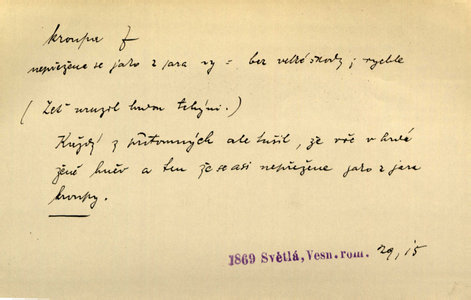 kroupa f
nepřežene se jako z jara ny = bez velké škody; rychle
(Zeť urazil hrdou tchýni.)
Každý z přítomných ale tušil, že vře v hrdé
ženě hněv a ten že se asi nepřežene jako z jara
kroupy.
1869 Světlá, Vesn. rom. 29, 15